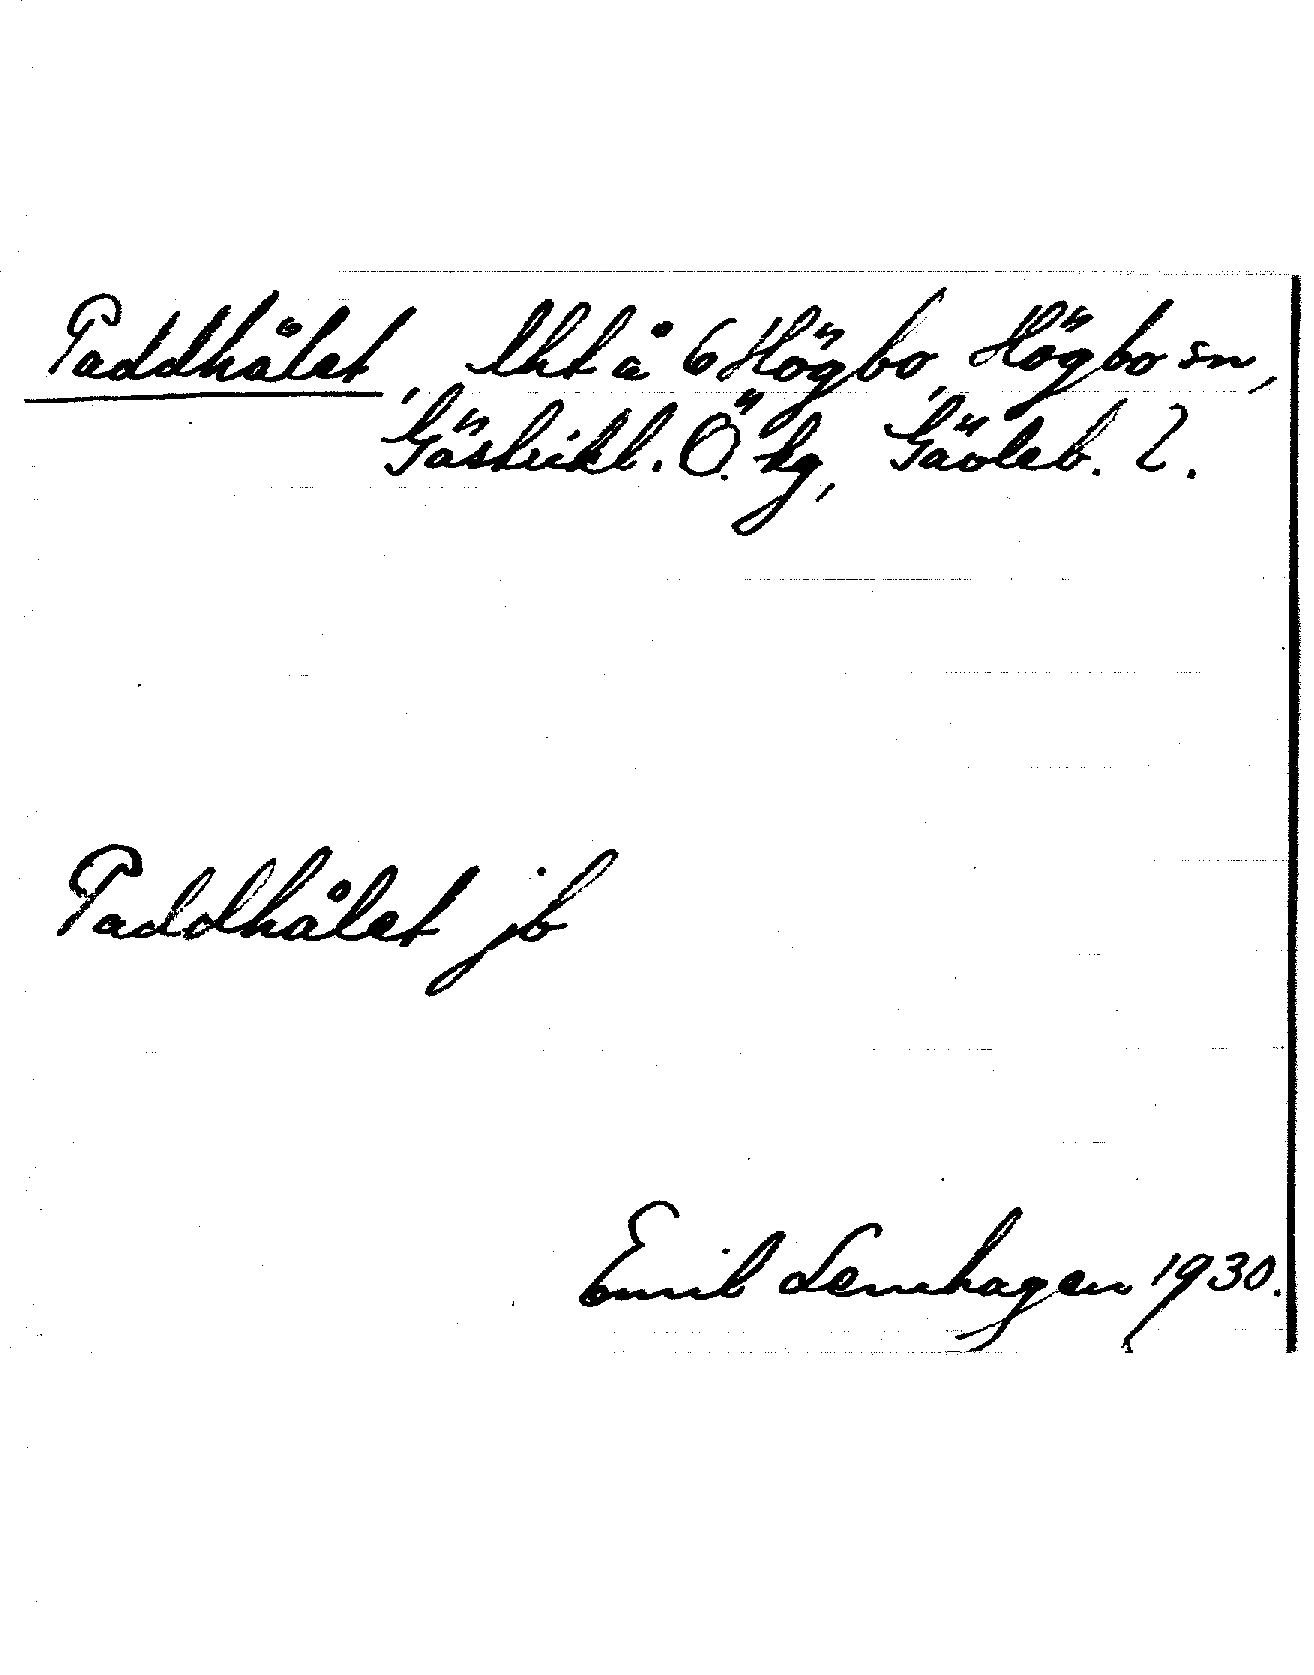 Paddhålet, lht å 6 Högbo, Högbo sn,
Gästrikl. Ö. tg, Gävleb. l.
Paddhålet jb
Emil Lenehagen 1930.